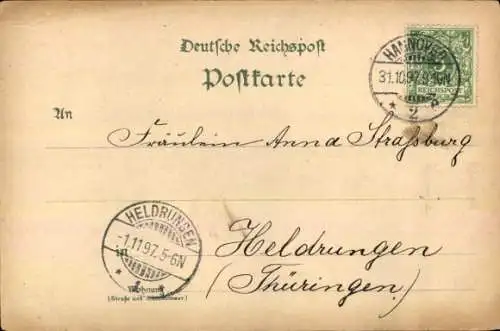 Deutsche Reichspost
Postkarte
HANNOVER
31.10.97.9-10N
* 2 a
REICHSPOST
An
Fräulein Anna Straßburg
HELDRUNGEN
-1.11.97.5-6N
* *
in
Heldrungen
(Thüringen)
Wohnung
(Straße und Hausnummer)